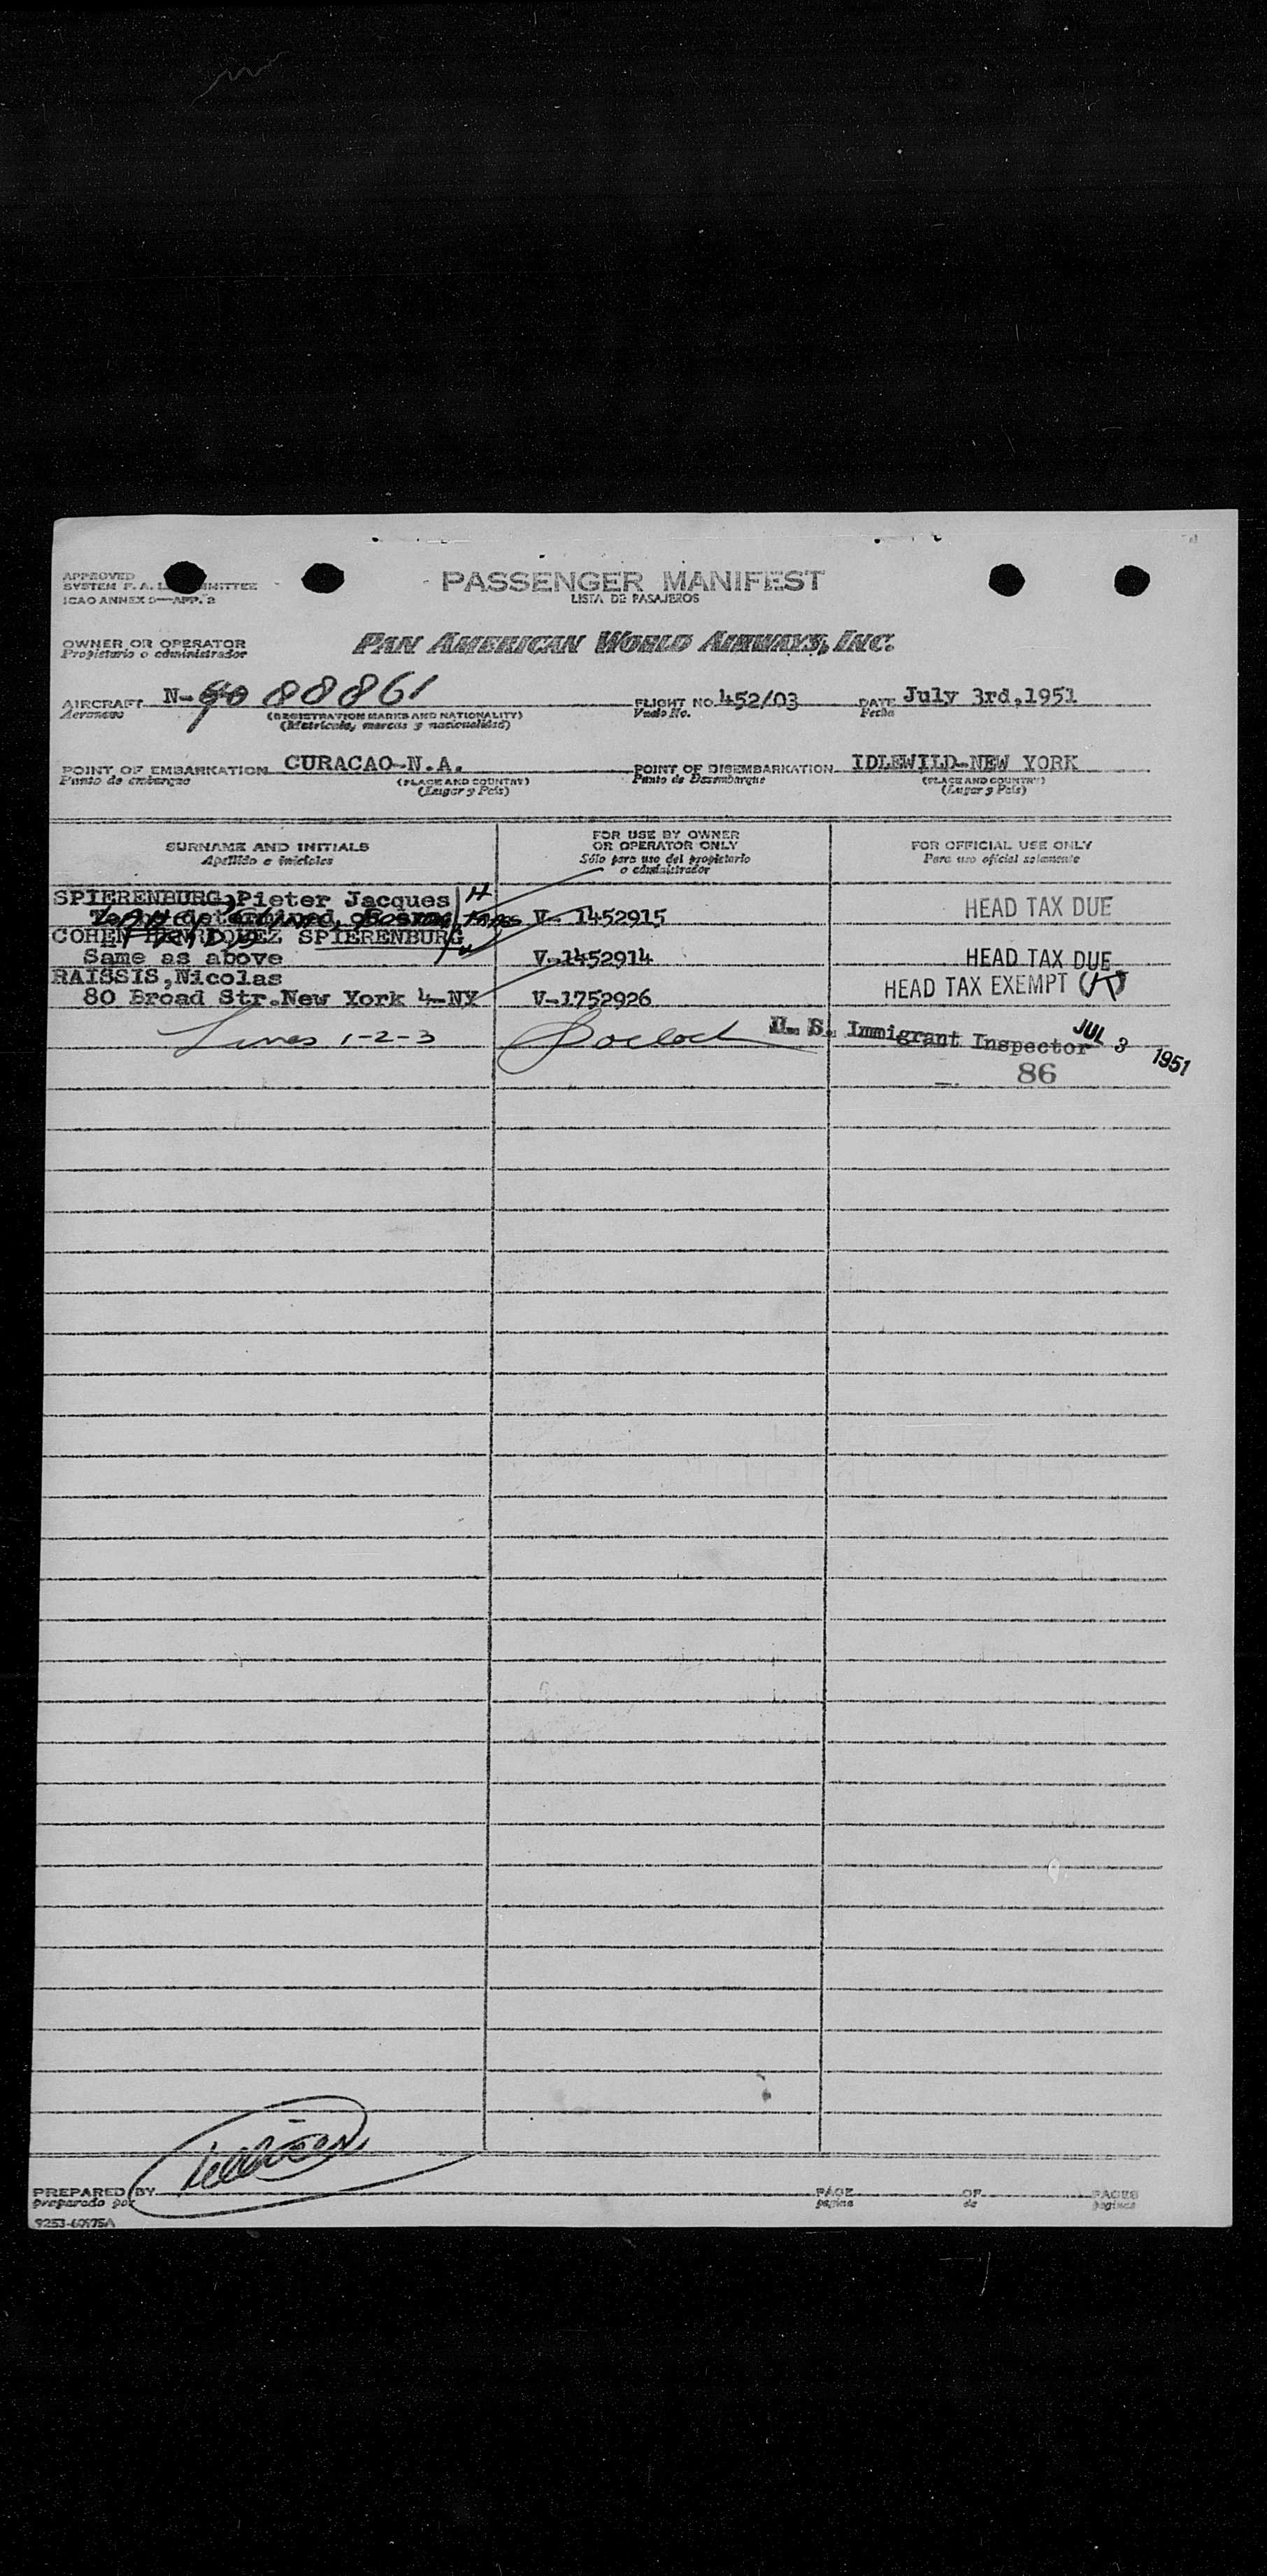 APPROVED
SYSTEM F. A. L. COMMITTEE
ICAO ANNEX 9—APP. 2
PASSENGER MANIFEST
LISTA DE PASAJEROS
OWNER OR OPERATOR
Propietario o administrador
PAN AMERICAN WORLD AIRWAYS, INC.
AIRCRAFT N- 88861 FLIGHT NO. 452/03 DATE July 3rd,1951
Aeronave (REGISTRATION MARKS AND NATIONALITY) Vuelo No. Fecha
(Matrícula, marcas y nacionalidad)
POINT OF EMBARKATION CURACAO-N.A. POINT OF DISEMBARKATION IDLEWILD-NEW YORK
Punto de embarque (PLACE AND COUNTRY) Punto de Desembarque (PLACE AND COUNTRY)
(Lugar y País) (Lugar y País)
SURNAME AND INITIALS
Apellido e iniciales
FOR USE BY OWNER
OR OPERATOR ONLY
Sólo para uso del propietario
o administrador
FOR OFFICIAL USE ONLY
Para uso oficial solamente
SPIERENBURG, Pieter Jacques H
To be determined V- 1452915 HEAD TAX DUE
COHEN HENRIQUEZ SPIERENBURG
Same as above V-1452914 HEAD TAX DUE
RAISSIS,Nicolas
80 Broad Str.New York 4-NY V-1752926 HEAD TAX EXEMPT
Lines 1-2-3 U. S. Immigrant Inspector JUL 3 1951
86
PREPARED BY PAGE OF PAGES
preparado por página de páginas
9253-60975A